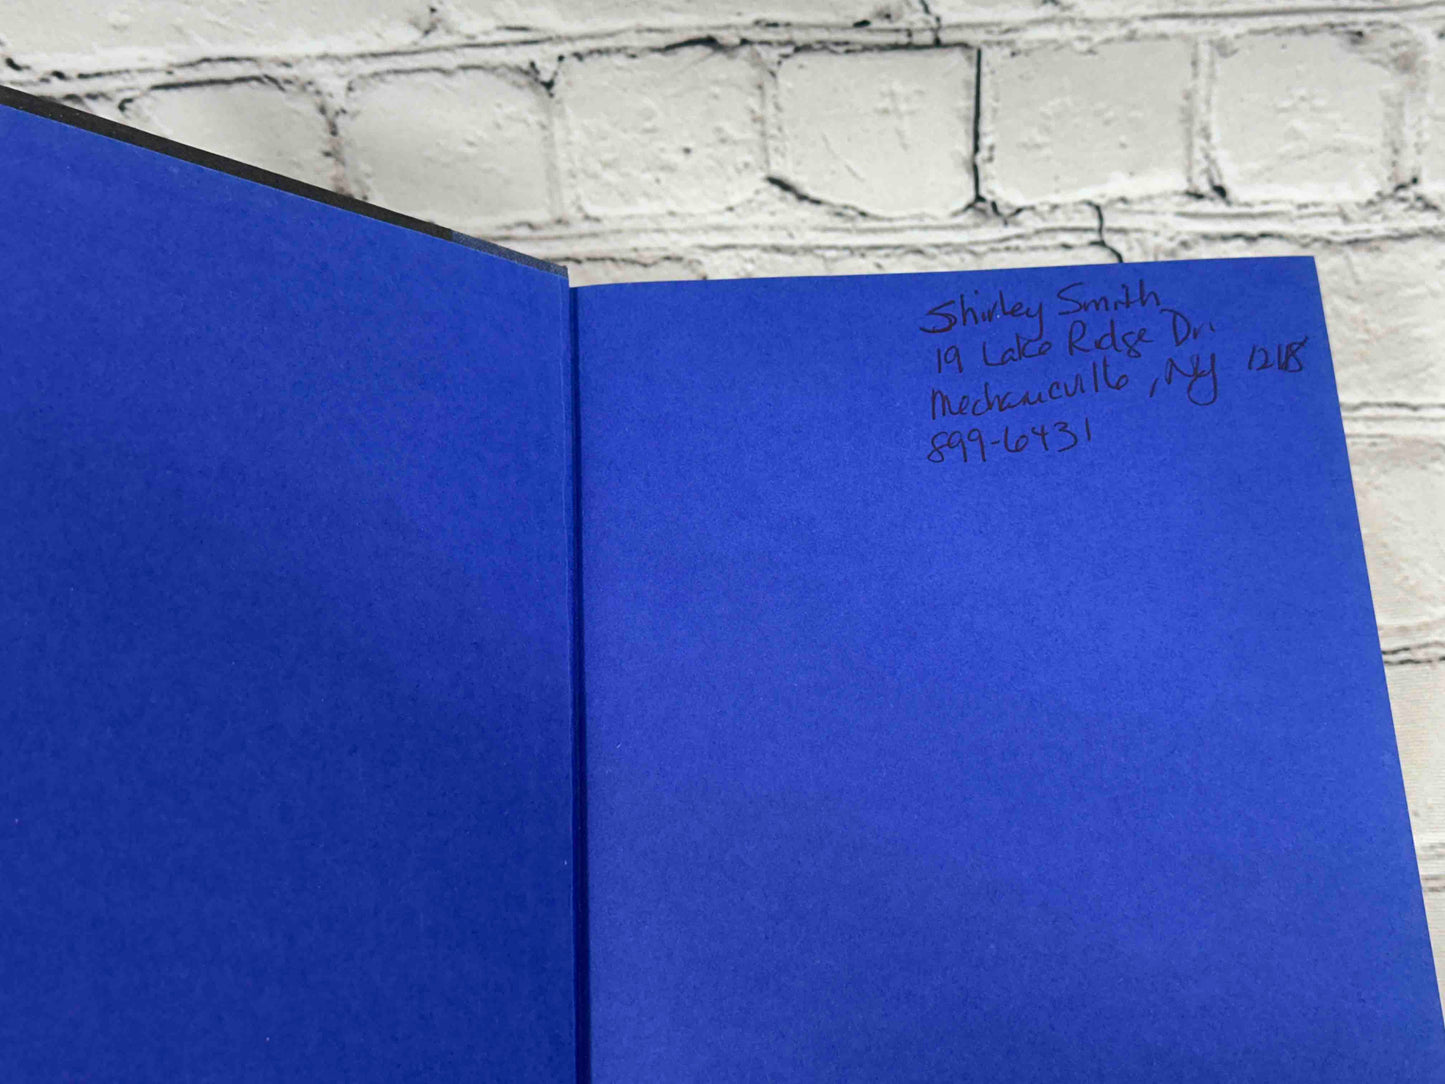 Shirley Smith
19 Lake Ridge Dr.
Mechanicville, NY 12118
899-6431